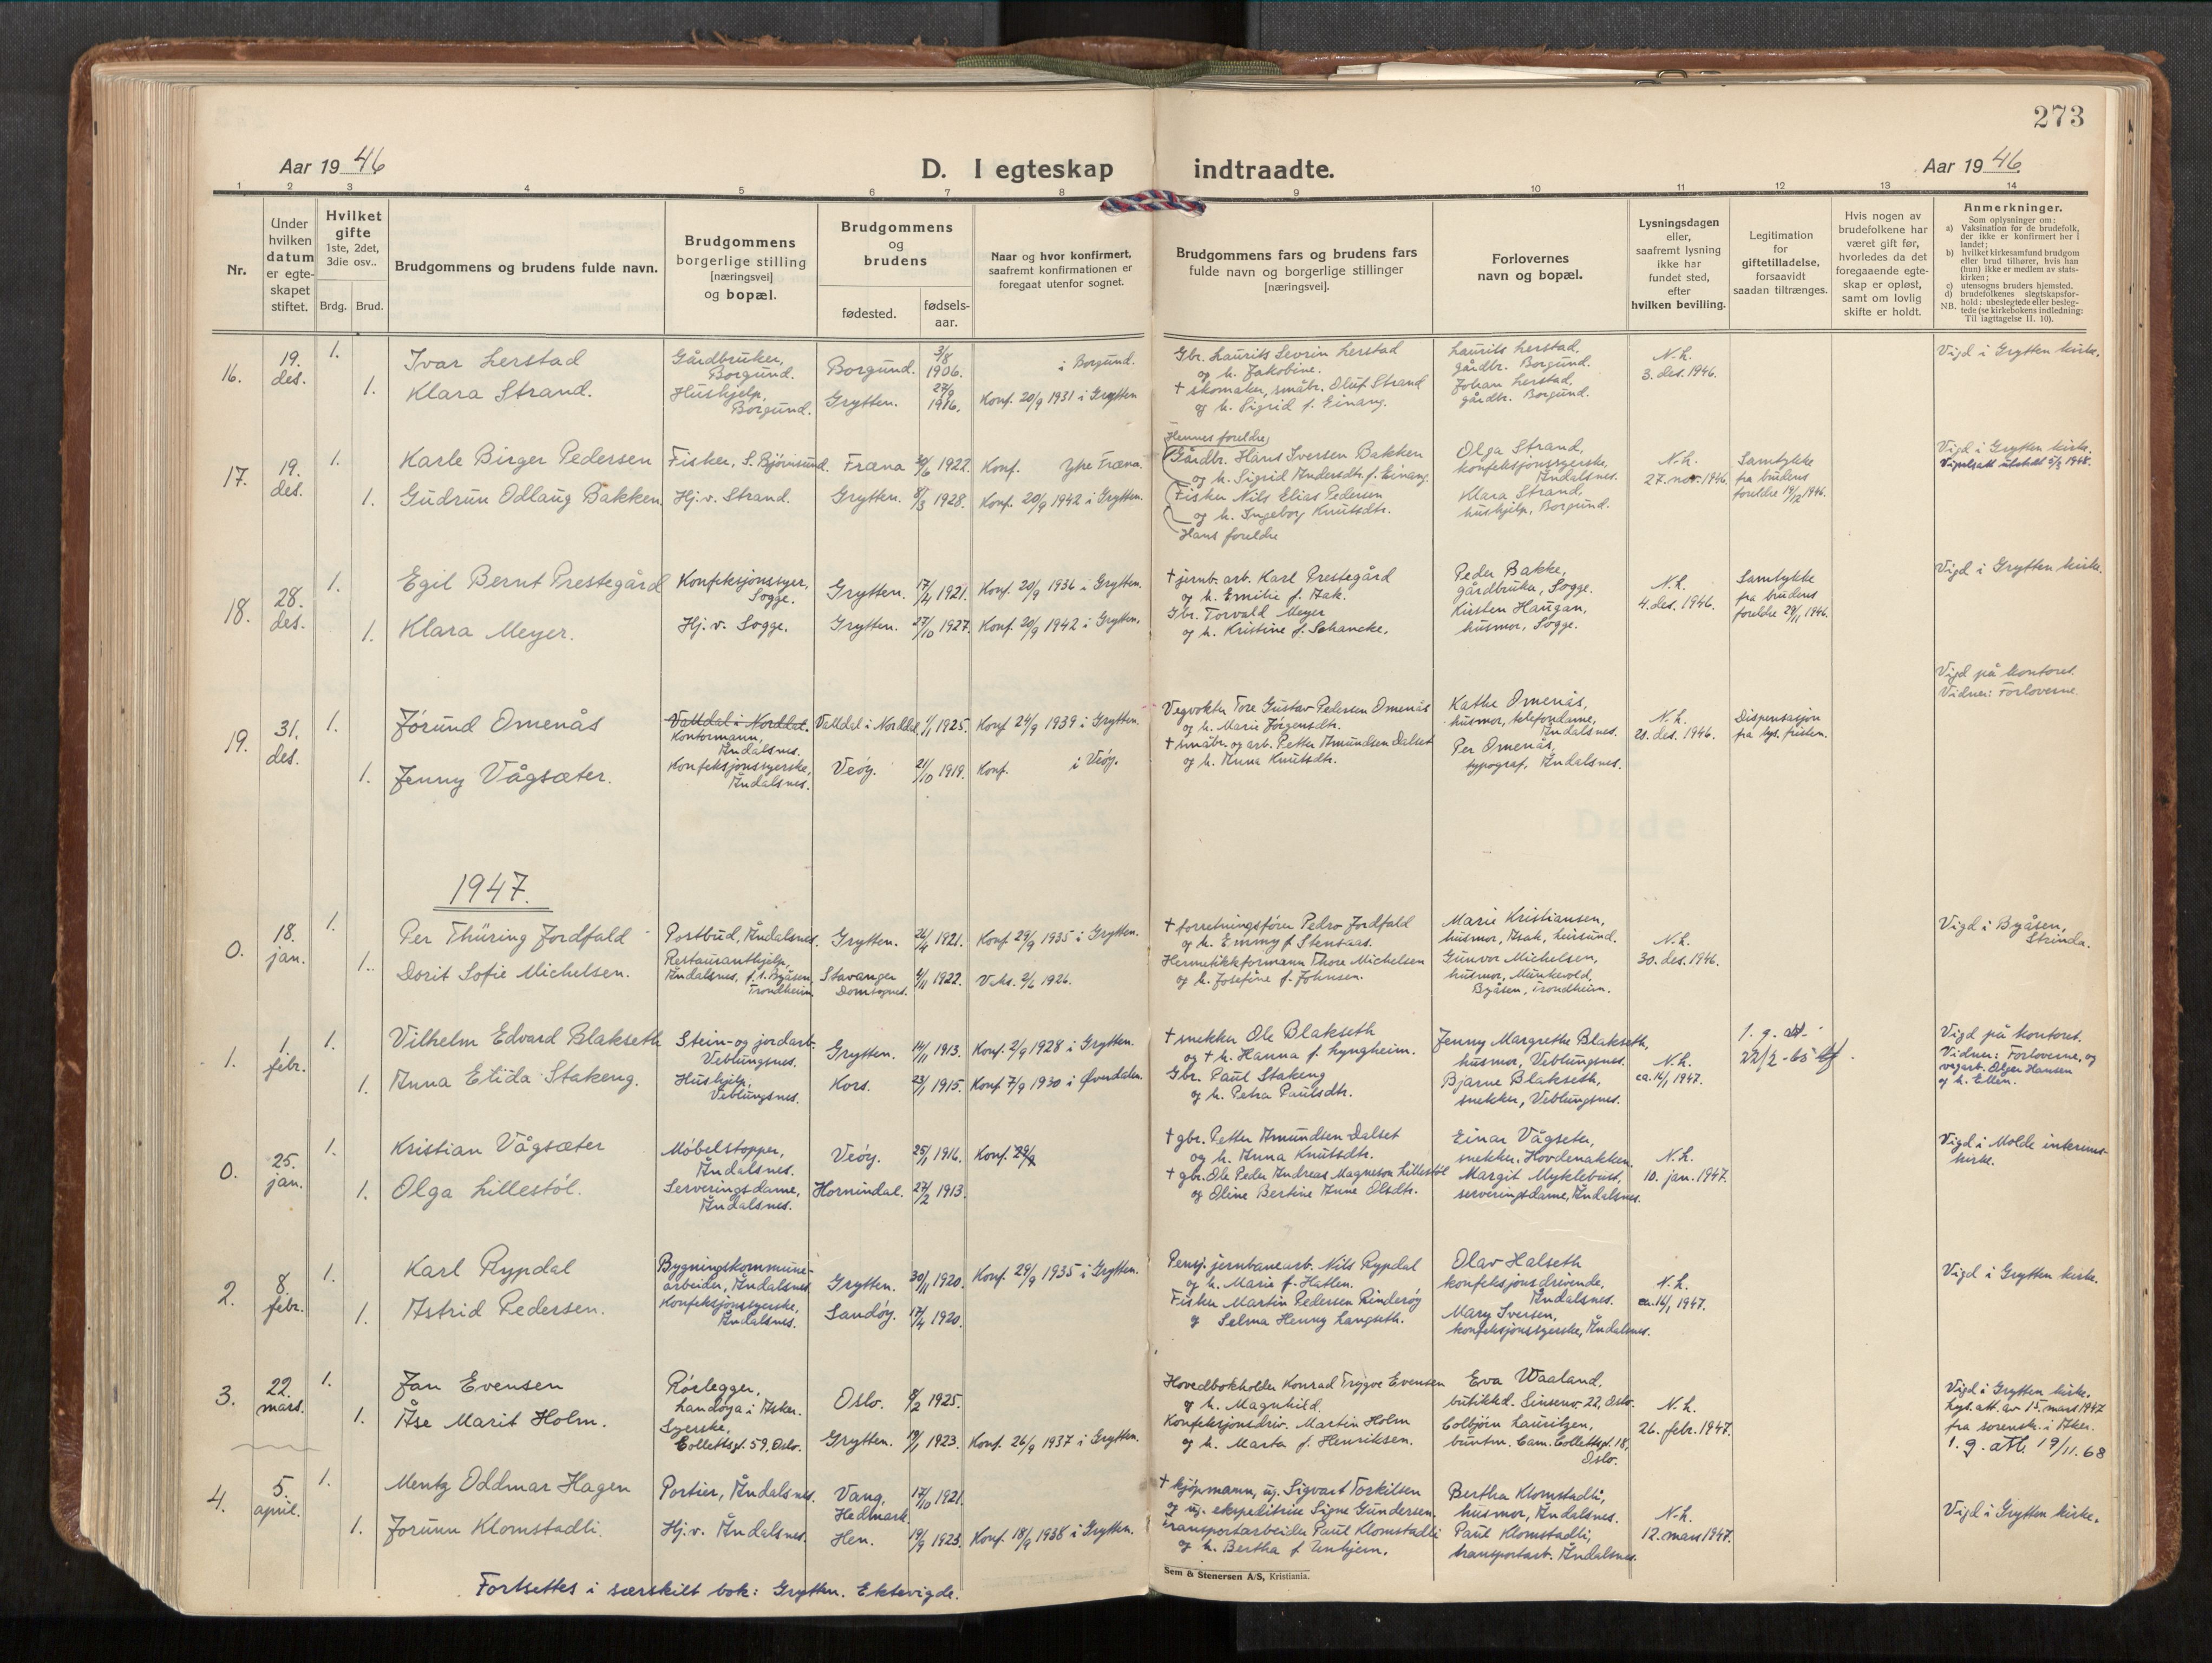 273
Aar 1946
D. I egteskap indtraadte.
Aar 1946.
1 2 3 4 5 6 7 8 9 10 11 12 13 14
Nr.
Under
hvilken
datum
er egte-
skapet
stiftet.
Hvilket
gifte
1ste, 2det,
3die osv..
Brdg. Brud.
Brudgommens og brudens fulde navn.
Brudgommens
borgerlige stilling
[næringsvei]
og bopæl.
Brudgommens
og
brudens
fødested.
fødsels-
aar.
Naar og hvor konfirmert,
saafremt konfirmationen er
foregaat utenfor sognet.
Brudgommens fars og brudens fars
fulde navn og borgerlige stillinger
[næringsvei].
Forlovernes
navn og bopæl.
Lysningsdagen
eller,
saafremt lysning
ikke har
fundet sted,
efter
hvilken bevilling.
Legitimation
for
giftetilladelse,
forsaavidt
saadan tiltrænges.
Hvis nogen av
brudefolkene har
været gift før,
hvorledes da det
foregaaende egte-
skap er opløst,
samt om lovlig
skifte er holdt.
Anmerkninger.
Som oplysninger om:
a) Vaksination for de brudefolk,
der ikke er konfirmert her i
landet;
b) hvilket kirkesamfund brudgom
eller brud tilhører, hvis han
(hun) ikke er medlem av stats-
kirken;
c) utensogns bruders hjemsted.
d) brudefolkenes slegtskapsfor-
hold; ubeslegtede eller besleg-
NB. tede (se kirkebokens indledning:
Til iagttagelse II. 10).
16.
19.
des.
1.
Ivar Lerstad
Gårdbruker,
Borgund.
Borgund.
3/8
1906.
i Borgund.
1.
Klara Strand.
Hushjelp,
Borgund.
Grytten.
27/9
1916.
Konf. 20/9 1931 i Grytten
Gbr. Laurits Sevrin Lerstad
og h. Jakobine.
† skomaker, småbr. Oluf Strand
og h. Sigrid f. Einang.
Laurits Lerstad,
gårdbr. Borgund.
Johan Lerstad,
gårdbr. Borgund.
N.h.
3. des. 1946.
Vigd i Grytten kirke.
17.
19.
des.
1.
Karle Birger Pedersen
Fisker, S. Bjørnsund.
Fræna
1922.
Konf. Ytre Fræna.
1.
Gudrun Odlaug Bakken
Hj. v. Strand.
Grytten.
8/3 1928.
Konf. 20/9 1942 i Grytten.
Hennes foreldre
Gårdbr. Hans Iversen Bakken
og h. Sigrid Andersdtr. f. Einang.
Fisker Nils Elias Pedersen
og h. Ingeborg Knutsdtr.
Hans foreldre
Olga Strand,
konfeksjonssyerske,
Åndalsnes.
Klara Strand,
hushjelp, Borgund.
N.h.
27. nov. 1946.
Samtykke
fra brudens
foreldre 19/12 1946.
Vigd i Grytten kirke.
Vigselsatt utstedt 5/2 1948.
18.
28.
des.
1.
Egil Bernt Prestegård
Konfeksjonssyer,
Sogge.
Grytten.
17/4 1921.
Konf. 20/9 1936 i Grytten.
1.
Klara Meyer.
Hj. v. Sogge.
Grytten.
27/10 1927.
Konf. 20/9 1942 i Grytten.
† jernb. arb. Karl Prestegård
og h. Emilie f. Aak.
Gbr. Torvald Meyer
og h. Kristine f. Schancke.
Peder Bakke,
gårdbruker, Sogge.
Kirsten Haugan,
husmor, Sogge.
N.h.
4. des. 1946.
Samtykke
fra brudens
foreldre 29/11 1946.
Vigd i Grytten kirke.
19.
31.
des.
1.
Jørund Omenås
Valldal i Norddal.
Kontormann,
Åndalsnes.
Valldal i Norddal.
1/1 1925.
Konf. 24/9 1939 i Grytten.
1.
Jenny Vågsæter.
Konfeksjonssyerske,
Åndalsnes.
Veøy.
21/10 1919.
Konf. i Veøy.
Vegvokter Tore Gustav Pedersen Omenås
og h. Marie Jørgensdtr.
† småbr. og arb. Petter Amundsen Dalset
og h. Anna Knutsdtr.
Kathe Omenås,
husmor, telefondame,
Åndalsnes.
Per Omenås,
typograf, Åndalsnes.
N.h.
28. des. 1946.
Dispensasjon
fra lys. fristen.
Vigd på kontoret.
Vidner: Forloverne.
1947.
0.
18.
jan.
1.
Per Thüring Jordfald
Portbud, Åndalsnes.
Grytten.
24/4 1921.
Konf. 29/9 1935 i Grytten.
1.
Dorit Sofie Michelsen.
Restauranthjelp,
Åndalsnes, f. t. Byåsen,
Trondheim
Stavanger
Domsogned.
4/11 1922.
Vaks. 2/6 1926.
† forretningsfører Pedro Jordfald
og h. Emmy f. Stensaas.
Hermetikkformann Thore Michelsen
og h. Josefine f. Johnsen.
Marie Kristiansen,
husmor, Aask, Leinsund.
Gunvor Michelsen,
husmor, Munkvold,
Byåsen, Trondheim.
N.h.
30. des. 1946.
Vigd i Byåsen,
Strinda.
1.
1.
febr.
1.
Vilhelm Edvard Blakseth
Stein- og jordarb.
Veblungsnes.
Grytten.
14/11 1913.
Konf. 2/9 1928 i Grytten.
1.
Anna Elida Stakeng.
Hushjelp,
Veblungsnes.
Kors.
23/1 1915.
Konf. 7/9 1930 i Øverdalen.
† snekker Ole Blakseth
og † h. Hanna f. Lyngheim.
Gbr. Paul Stakeng
og h. Petra Paulsdtr.
Jenny Margrethe Blakseth,
husmor, Veblungsnes.
Bjarne Blakseth,
snekker, Veblungsnes.
N.h.
ca. 16/1 1947.
1. g. att.
22/2 - 65
Vigd på kontoret.
Vidner: Forloverne, og
vegarb. Olger Hansen
og h. Ellen.
0.
25.
jan.
1.
Kristian Vågsæter
Møbelstopper,
Åndalsnes.
Veøy.
25/1 1916.
Konf. 29/9
1.
Olga Lillestøl.
Serveringsdame,
Åndalsnes.
Hornindal.
27/2 1913.
† gbr. Petter Amundsen Dalset
og h. Anna Knutsdtr.
† gbr. Ole Peder Andreas Magneson Lillestøl
og Oline Bertine Anne Olsdtr.
Einar Vågseter,
snekker, Hovdenakken.
Margit Myklebust,
serveringsdame, Åndalsnes.
N.h.
10. jan. 1947.
Vigd i Molde interims-
kirke.
2.
8.
febr.
1.
Karl Rypdal
Bygningskommune-
arbeider, Åndalsnes
Grytten.
30/11 1920.
Konf. 29/9 1935 i Grytten.
1.
Astrid Pedersen.
Konfeksjonssyerske,
Åndalsnes.
Sandøy.
17/4 1920.
Pensj. jernbanearb. Nils Rypdal
og h. Marie f. Hatlen.
Fisker Martin Pedersen Rinderøy
og Selma Henny Langseth.
Olav Halseth
konfeksjonsdrivende,
Åndalsnes.
Mary Iversen,
konfeksjonssyerske, Åndalsnes.
N.h.
ca. 16/1 1947.
Vigd i Grytten kirke.
3.
22.
mars.
1.
Jan Evensen
Rørlegger,
Landøya i Asker.
Oslo.
8/2 1925.
1.
Åse Marit Holm.
Syerske,
Collettsgt. 59, Oslo.
Grytten.
19/1 1923.
Konf. 26/9 1937 i Grytten.
Hovedbokholder Konrad Trygve Evensen
og h. Magnhild.
Konfeksjonsdriv. Martin Holm
og h. Marta f. Henriksen.
Eva Waaland,
butikkd. Sinsenv. 22, Oslo.
Colbjørn Lauritzen,
buntm. Cam. Collettsgt. 18,
Oslo.
N.h.
26. febr. 1947.
Vigd i Grytten kirke.
Lys. att. av 15. mars 1947
fra sorensk. i Aker.
1. g. att. 19/11. 68
4.
5.
april.
1.
Mentz Oddmar Hagen
Portier, Åndalsnes.
Vang,
Hedmark
17/10 1921.
1.
Jorunn Klomstadli.
Hj. v. Åndalsnes.
Hen.
19/9 1923.
Konf. 18/9 1938 i Grytten.
† kjøpmann, ug. Sigvart Torkilsen
og ug. ekspeditrise Signe Gundersen.
Transportarbeider Paul Klomstadli
og h. Bertha f. Unhjem.
Bertha Klomstadli,
husmor, Åndalsnes.
Paul Klomstadli,
transportarb. Åndalsnes.
N.h.
12. mars 1947.
Vigd i Grytten kirke.
Sem & Stenersen A/S, Kristiania.
Fortsettes i særskilt bok: Grytten. Ektevigde.